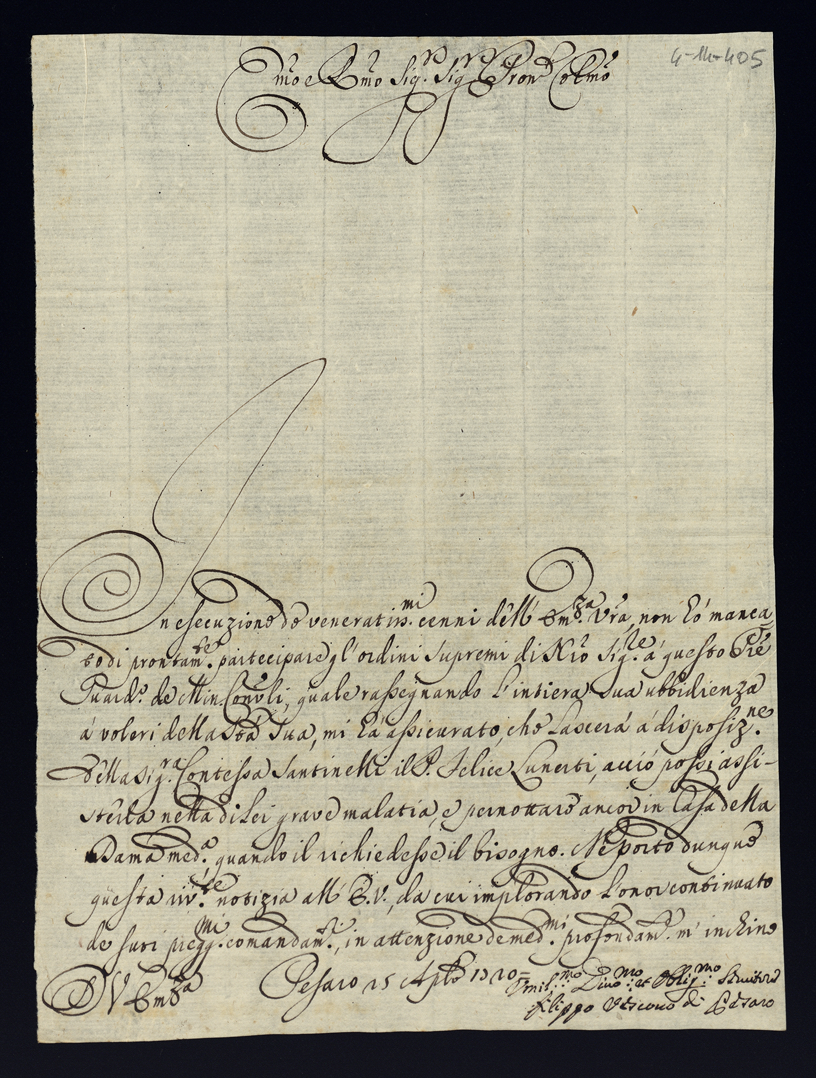 4-14-405
Emo e Rmo Sig.r Sig.r Pron Colmo
In esecuzione de veneratiss.mi cenni dell' Em.za Vrã, non hò manca-
to di prontam.te partecipare gl'ordini supremi di Nrõ Sig.re à questo Prẽ
Guard.o de Min: Convli, quale rassegnando l'intiera sua ubbidienza
à voleri della Stà Sua, mi hà assicurato, che lascerà à disposiz.ne
della Sig.ra Contessa Santinelli il P. Felice Lunerti, acciò possi assi-
sterla nella di lei grave malatia, e pernottare ancor in Casa della
Dama med.a quando il richiedesse il bisogno. Ne porto dunque
questa riv.te notizia all' E.V., da cui implorando l'onor continuato
de suoi preg.mi comandam.ti, in attenzione de med.mi profondam.te m' inchino
D V Em.za
Pesaro 15 Aple 1720=
Umil.mo Divo.mo et Oblig.mo Servitore
Filippo Vescovo di Pesaro